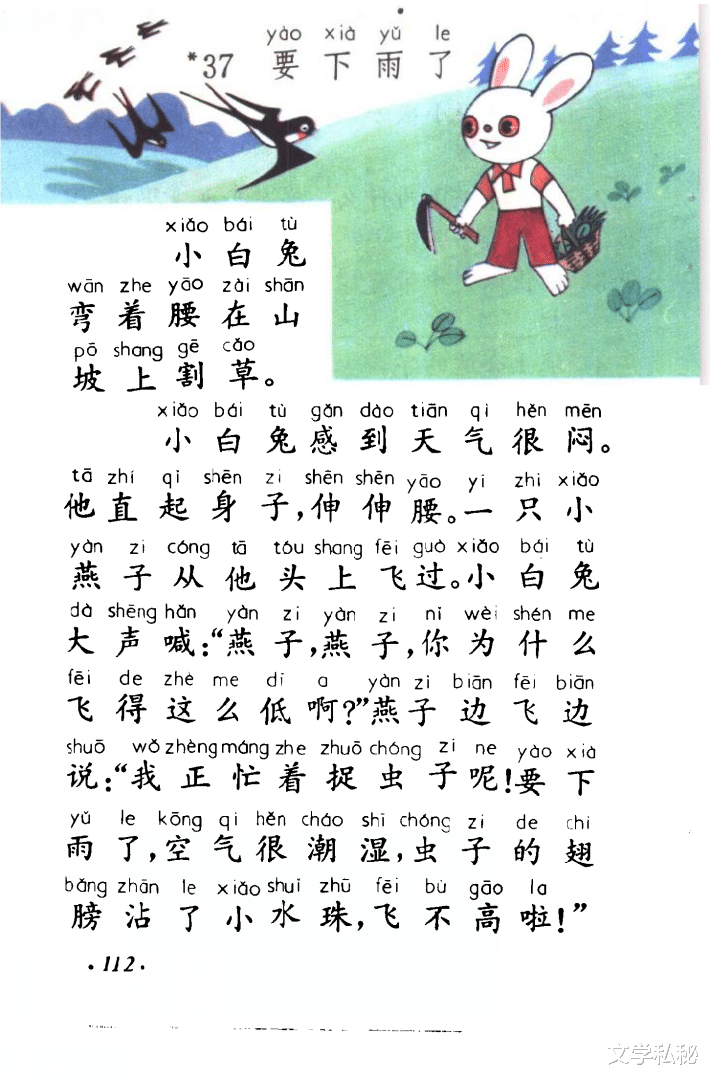 yào xià yǔ le
*37 要下雨了
xiǎo bái tù
小白兔
wān zhe yāo zài shān
弯着腰在山
pō shang gē cǎo
坡上割草。
xiǎo bái tù gǎn dào tiān qi hěn mēn
小白兔感到天气很闷。
tā zhí qi shēn zi shēn shēn yāo yi zhi xiǎo
他直起身子,伸伸腰。一只小
yàn zi cóng tā tóu shang fēi guò xiǎo bái tù
燕子从他头上飞过。小白兔
dà shēng hǎn yàn zi yàn zi ni wèi shén me
大声喊:“燕子,燕子,你为什么
fēi de zhè me dī a yàn zi biān fēi biān
飞得这么低啊?”燕子边飞边
shuō wǒ zhèng máng zhe zhuō chóng zi ne yào xià
说:“我正忙着捉虫子呢!要下
yǔ le kōng qi hěn cháo shī chóng zi de chi
雨了,空气很潮湿,虫子的翅
bǎng zhān le xiǎo shuǐ zhū fēi bù gāo la
膀沾了小水珠,飞不高啦!”
·112·
文学私秘